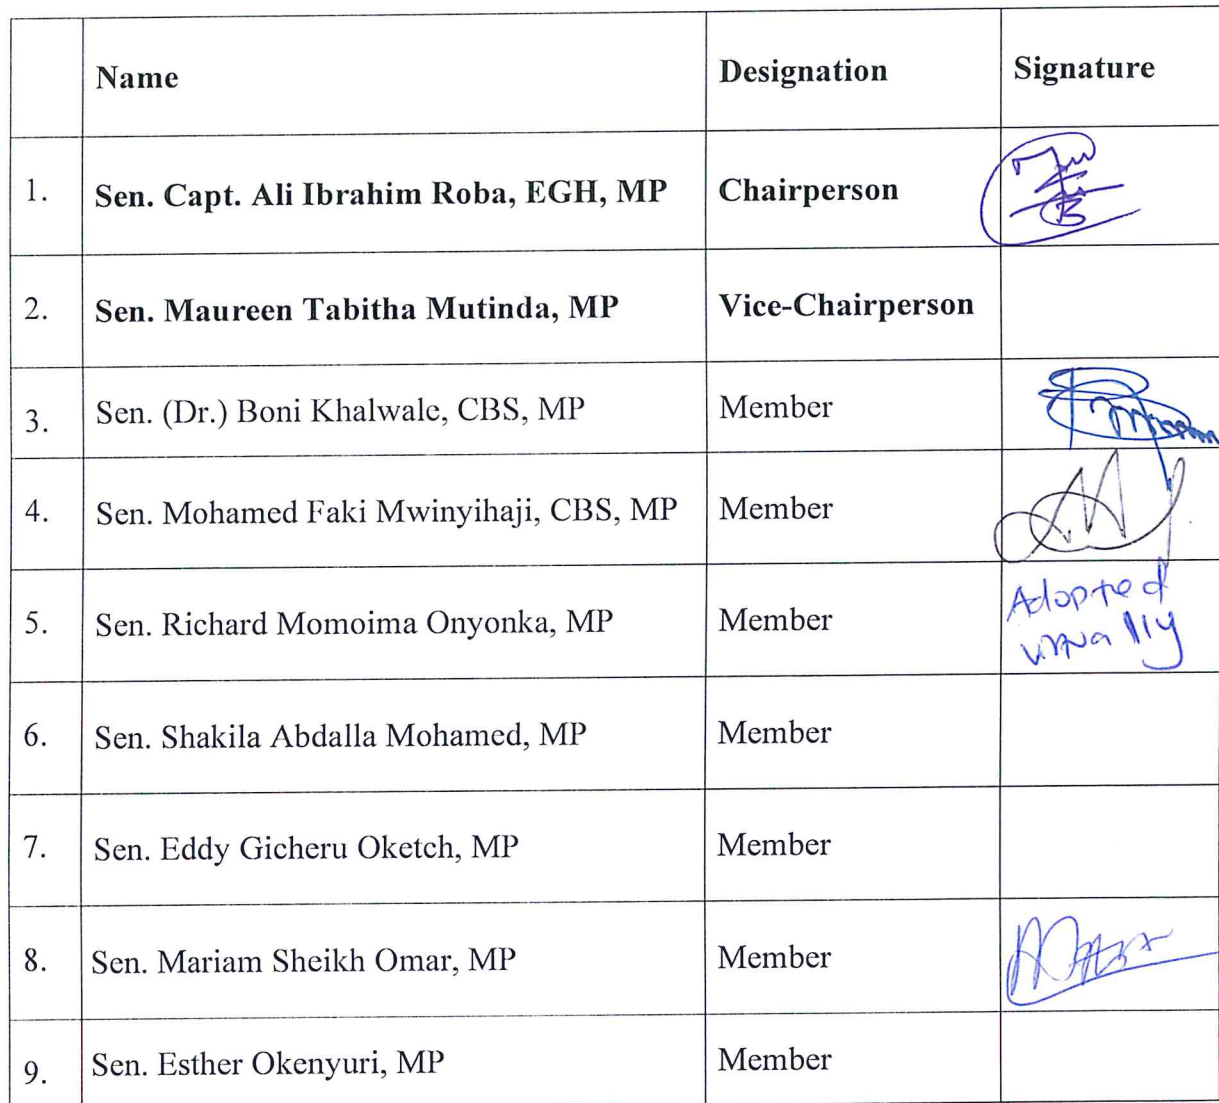 Name Designation Signature
1. Sen. Capt. Ali Ibrahim Roba, EGH, MP Chairperson
2. Sen. Maureen Tabitha Mutinda, MP Vice-Chairperson
3. Sen. (Dr.) Boni Khalwale, CBS, MP Member
4. Sen. Mohamed Faki Mwinyihaji, CBS, MP Member
5. Sen. Richard Momoima Onyonka, MP Member Adopted
6. Sen. Shakila Abdalla Mohamed, MP Member
7. Sen. Eddy Gicheru Oketch, MP Member
8. Sen. Mariam Sheikh Omar, MP Member
9. Sen. Esther Okenyuri, MP Member